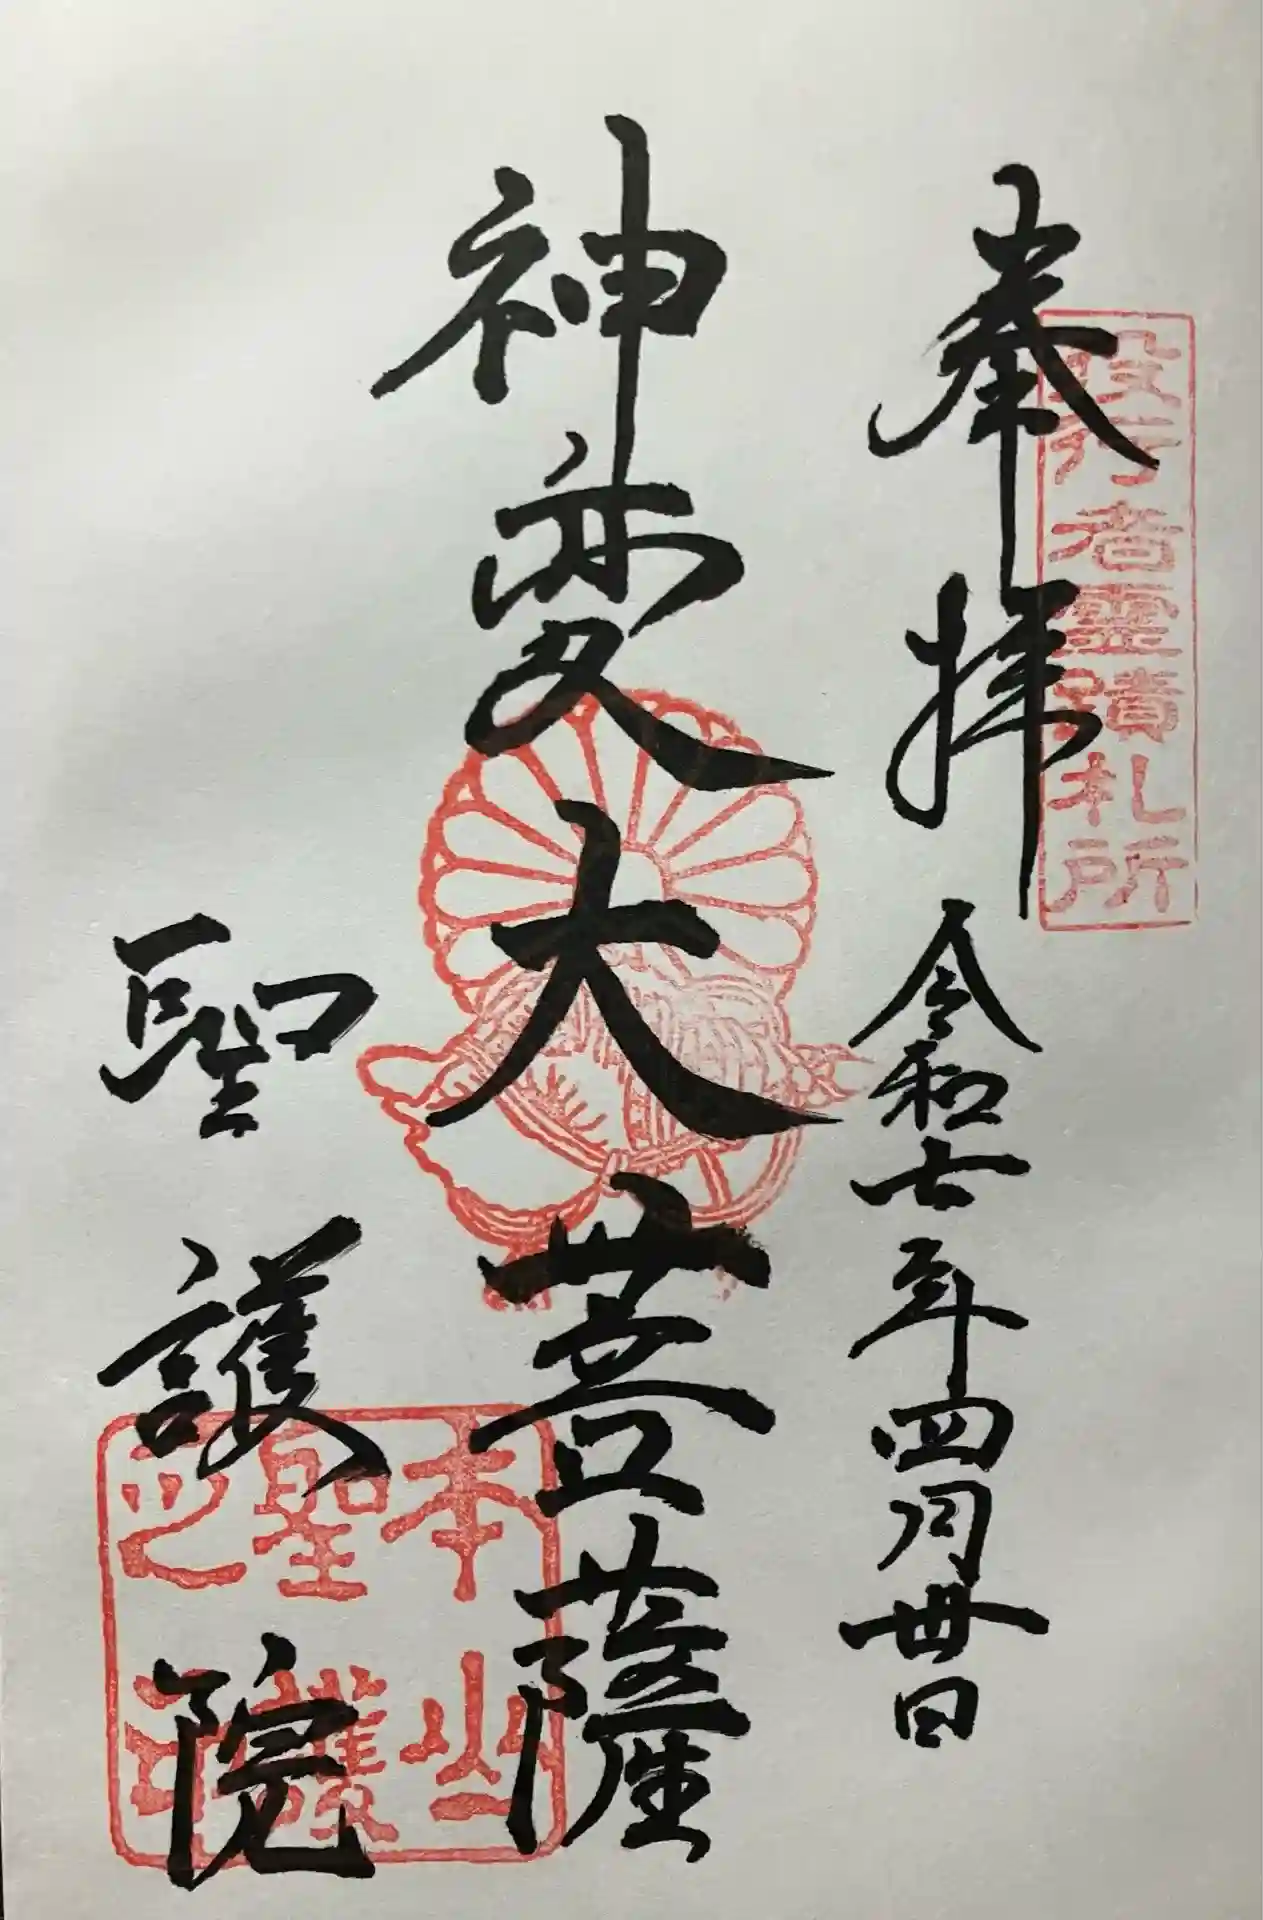 役行者霊蹟札所
奉拝
令和七年四月卅日
神変大菩薩
聖護院
本山
聖護
之印